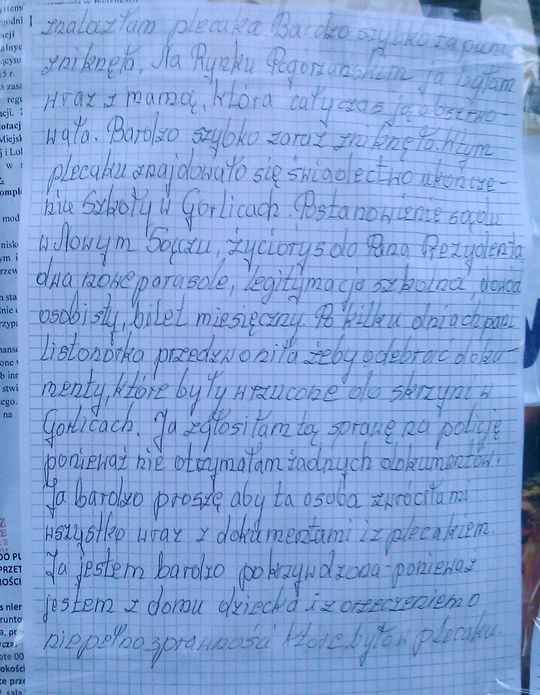 znalazłam plecaka Bardzo szybko ta pani
zniknęła. Na Rynku Pogorzańskim ja byłam
wraz z mamą, która cały czas ją obserwo-
wała. Bardzo szybko zaraz zniknęła. W tym
plecaku znajdowało się świadectwo ukończe-
nia szkoły w Gorlicach. Postanowienie sądu
w Nowym Sączu, życiorys do Pana Prezydenta
dwa nowe parasole, legitymacja szkolna, dowód
osobisty, bilet miesięczny. Po kilku dniach pani
listonórka przedzwoniła żeby odebrać doku-
menty, które były wrzucone do skrzyni w
Gorlicach. Ja zgłosiłam tą sprawę na policję
ponieważ nie otrzymałam żadnych dokumentów.
Ja bardzo proszę aby ta osoba zwróciła mi
wszystko wraz z dokumentami i z plecakiem.
Ja jestem bardzo pokrzywdzona-ponieważ
jestem z domu dziecka i z orzeczeniem o
niepełnozprawności które było w plecaku.